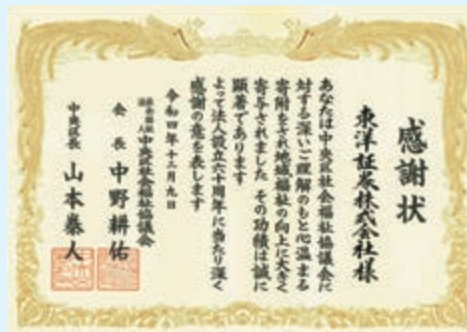 感謝状
東洋証券株式会社様
あなたは中央区社会福祉協議会に
対する深いご理解のもと心温まる
寄附をされ地域福祉の向上に大きく
寄与されました その功績は誠に
顕著であります
よって法人設立六十周年に当たり深く
感謝の意を表します
令和四年十二月九日
社会福祉法人 中央区社会福祉協議会
会長 中野耕佑
中央区長 山本泰人